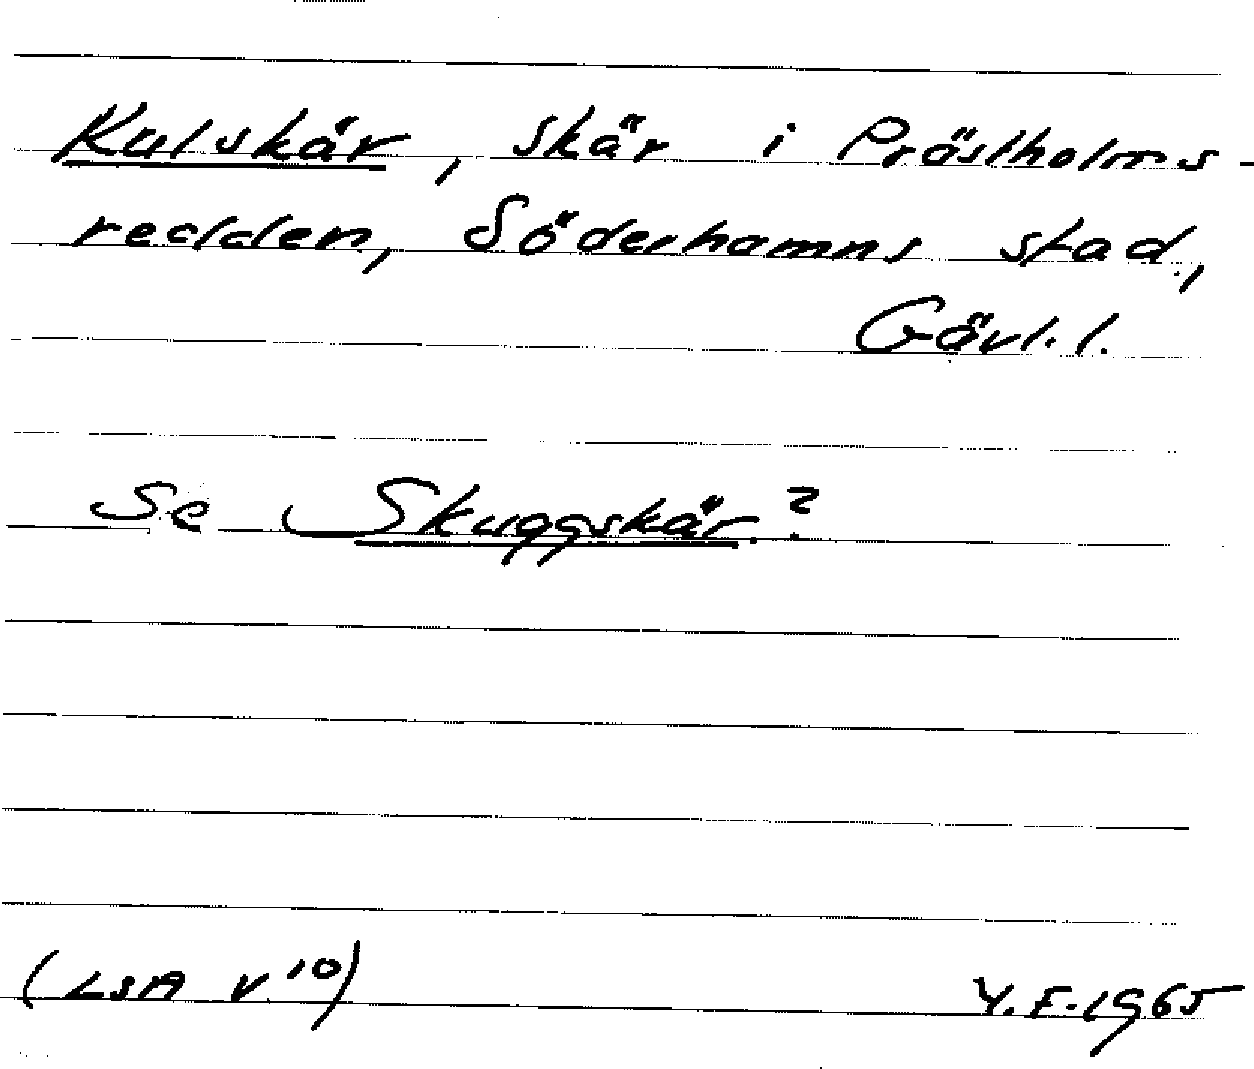 Kulskär, skär i Prästholms-
redden, Söderhamns stad,
Gävl.l.
Se Skuggskär.?
(LSA V 10) Y.F. 1965